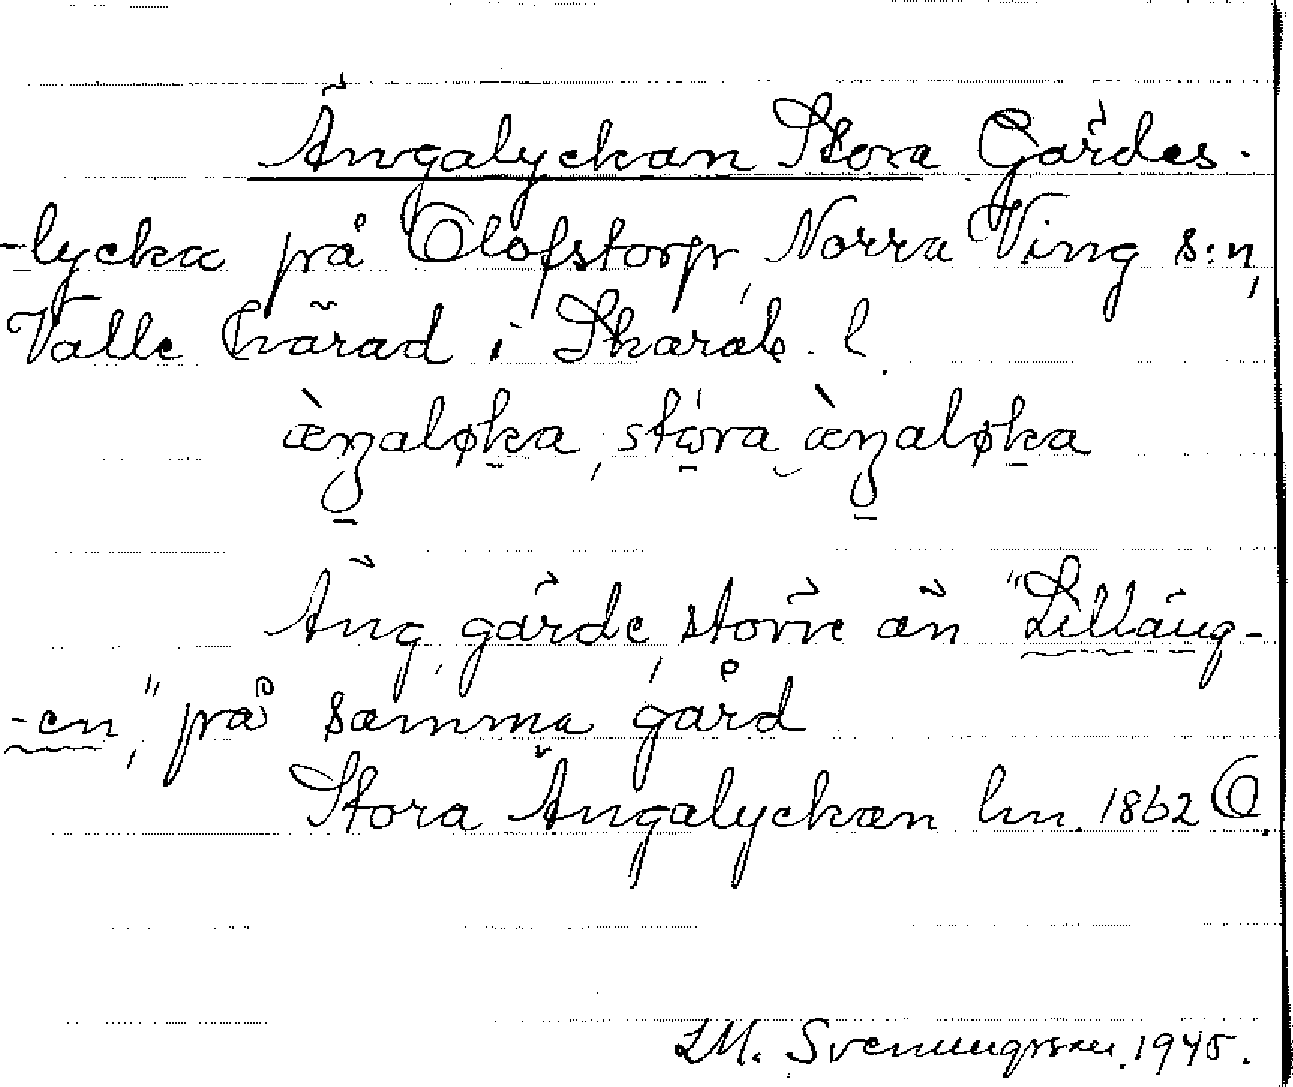 Ängalyckan Stora Gärdes-
-lycka på Olofstorp, Norra Ving s:n,
Valle härad i Skarab. l.
æ̀ŋaløka, stóra æ̀ŋaløka
Äng, gärde, större än "Lilläng-
-en", på samma gård
Stora Ängalyckan hn. 1862 O.
LM. Svenungsson. 1945.